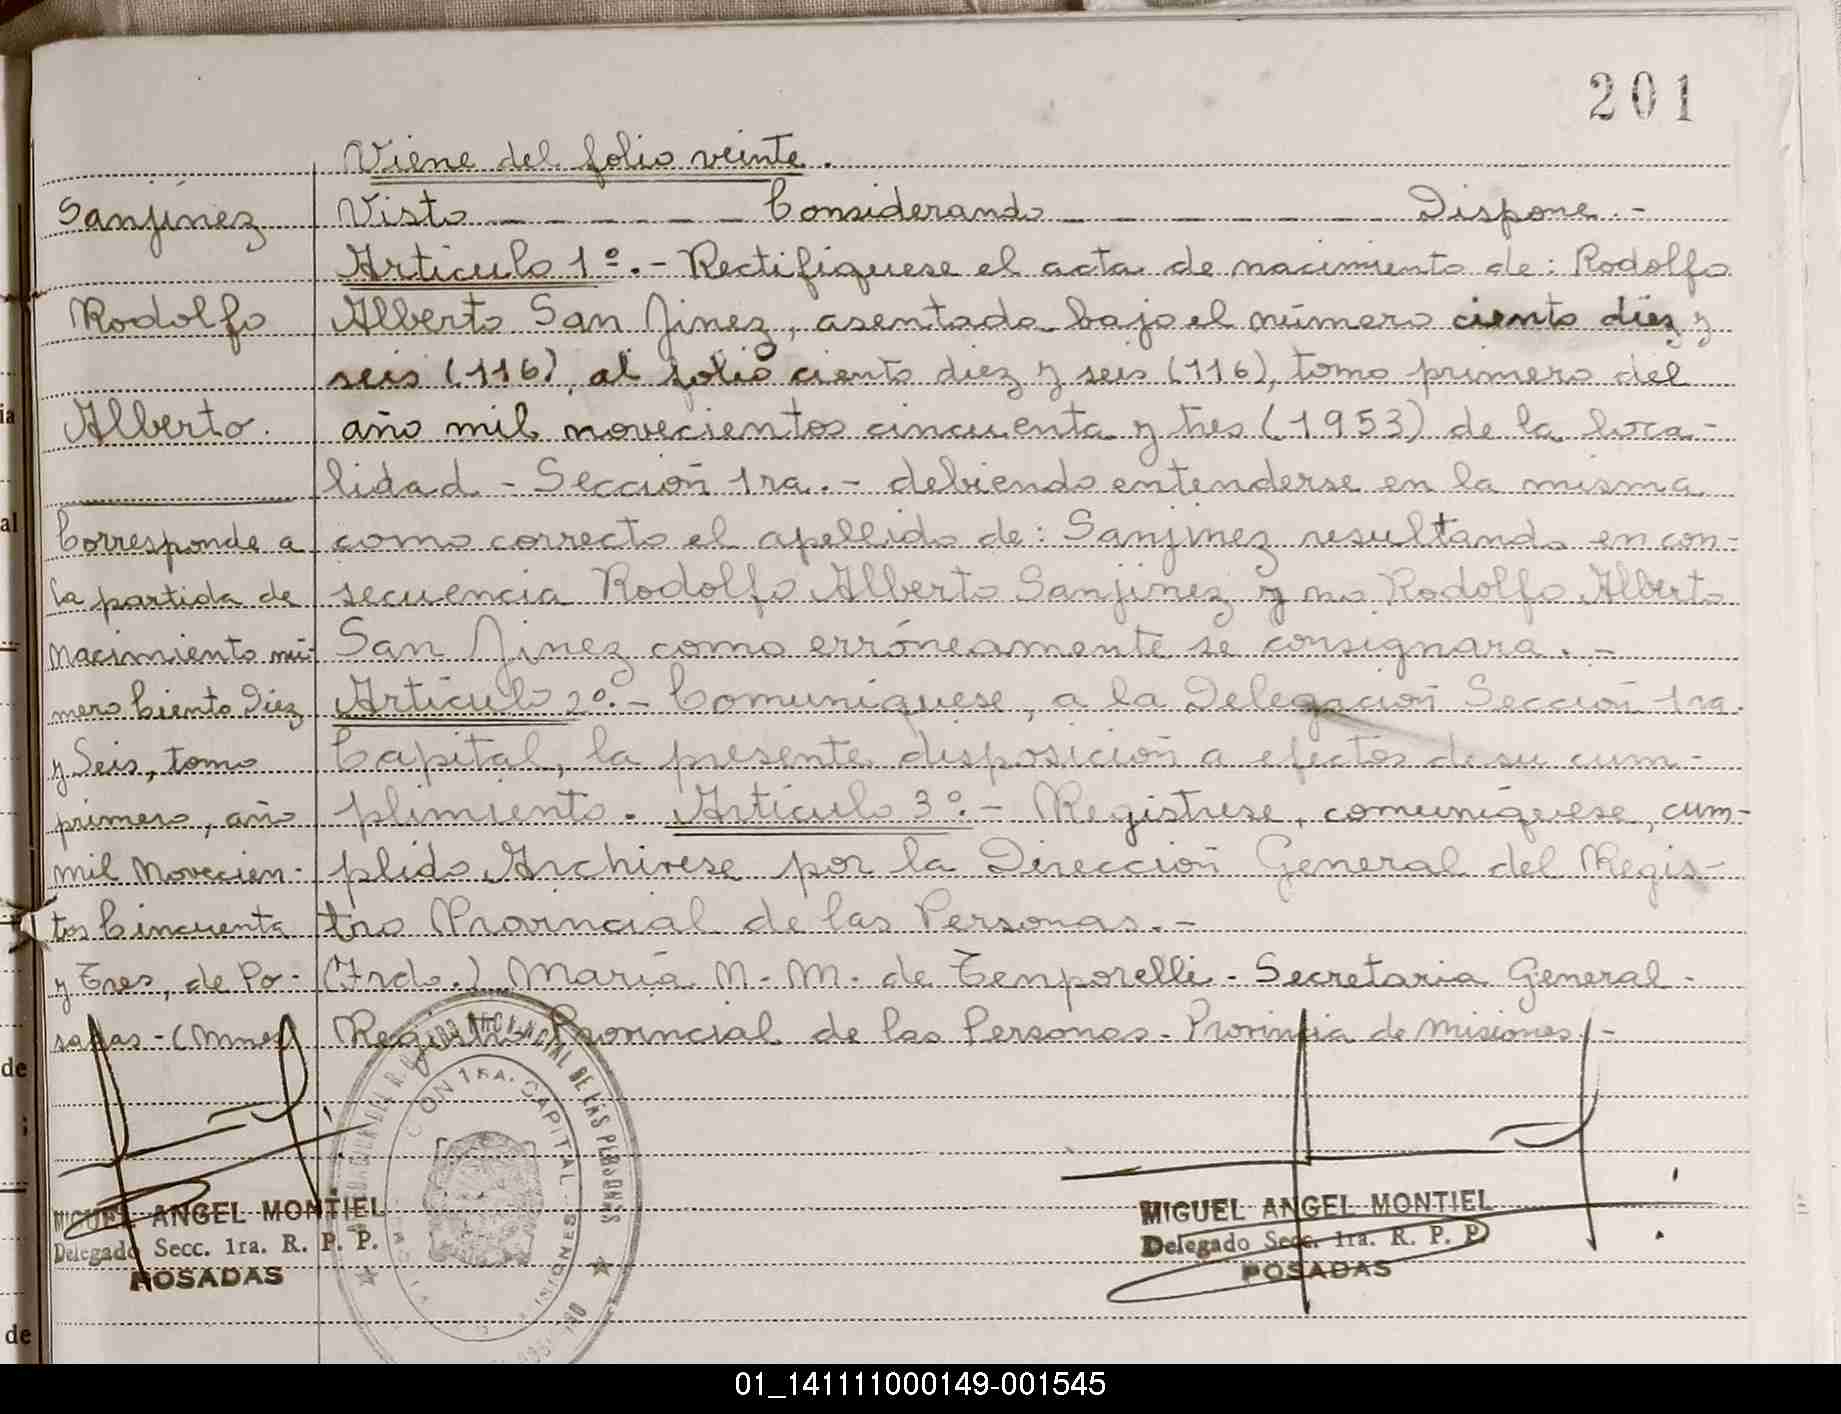 201
Viene del folio veinte.
Visto _ _ _ _ _ _ Considerando _ _ _ _ _ _ _ _ Dispone.-
Articulo 1º.- Rectifiquese el acta de nacimiento de: Rodolfo
Alberto San Jinez, asentada bajo el número ciento diez y
seis (116), al folio ciento diez y seis (116), tomo primero del
año mil novecientos cincuenta y tres (1953) de la loca-
lidad - Sección 1ra.- debiendo entenderse en la misma
como correcto el apellido de: Sanjinez resultando en con-
secuencia Rodolfo Alberto Sanjinez y no Rodolfo Alberto
San Jinez como erróneamente se consignara.-
Articulo 2º.- Comuniquese, a la Delegación Sección 1ra.
Capital, la presente disposición a efectos de su cum-
plimiento. Artículo 3º.- Registrese, comuníquese, cum-
plido Archivese por la Dirección General del Regis-
tro Provincial de las Personas.-
(Frdo.) María N. M. de Temporelli - Secretaria General -
Registro Provincial de las Personas - Provincia de Misiones.-
Sanjínez
Rodolfo
Alberto.
Corresponde a
la partida de
Nacimiento nú-
mero Ciento Diez
y Seis, tomo
primero, año
mil Novecien-
tos Cincuenta
y Tres, de Po-
sadas - (Mnes)
MIGUEL ANGEL MONTIEL
Delegado Secc. 1ra. R. P. P.
POSADAS
PROVINCIAL DE LAS PERSONAS
CION 1RA. CAPITAL
MISIONES
MIGUEL ANGEL MONTIEL
Delegado Secc. 1ra. R. P. P.
POSADAS
ia
al
de
;
de
01_141111000149-001545